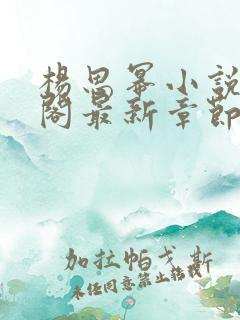 杨思幂小说
阁最新章节
加拉帕戈斯
未经同意禁止转载